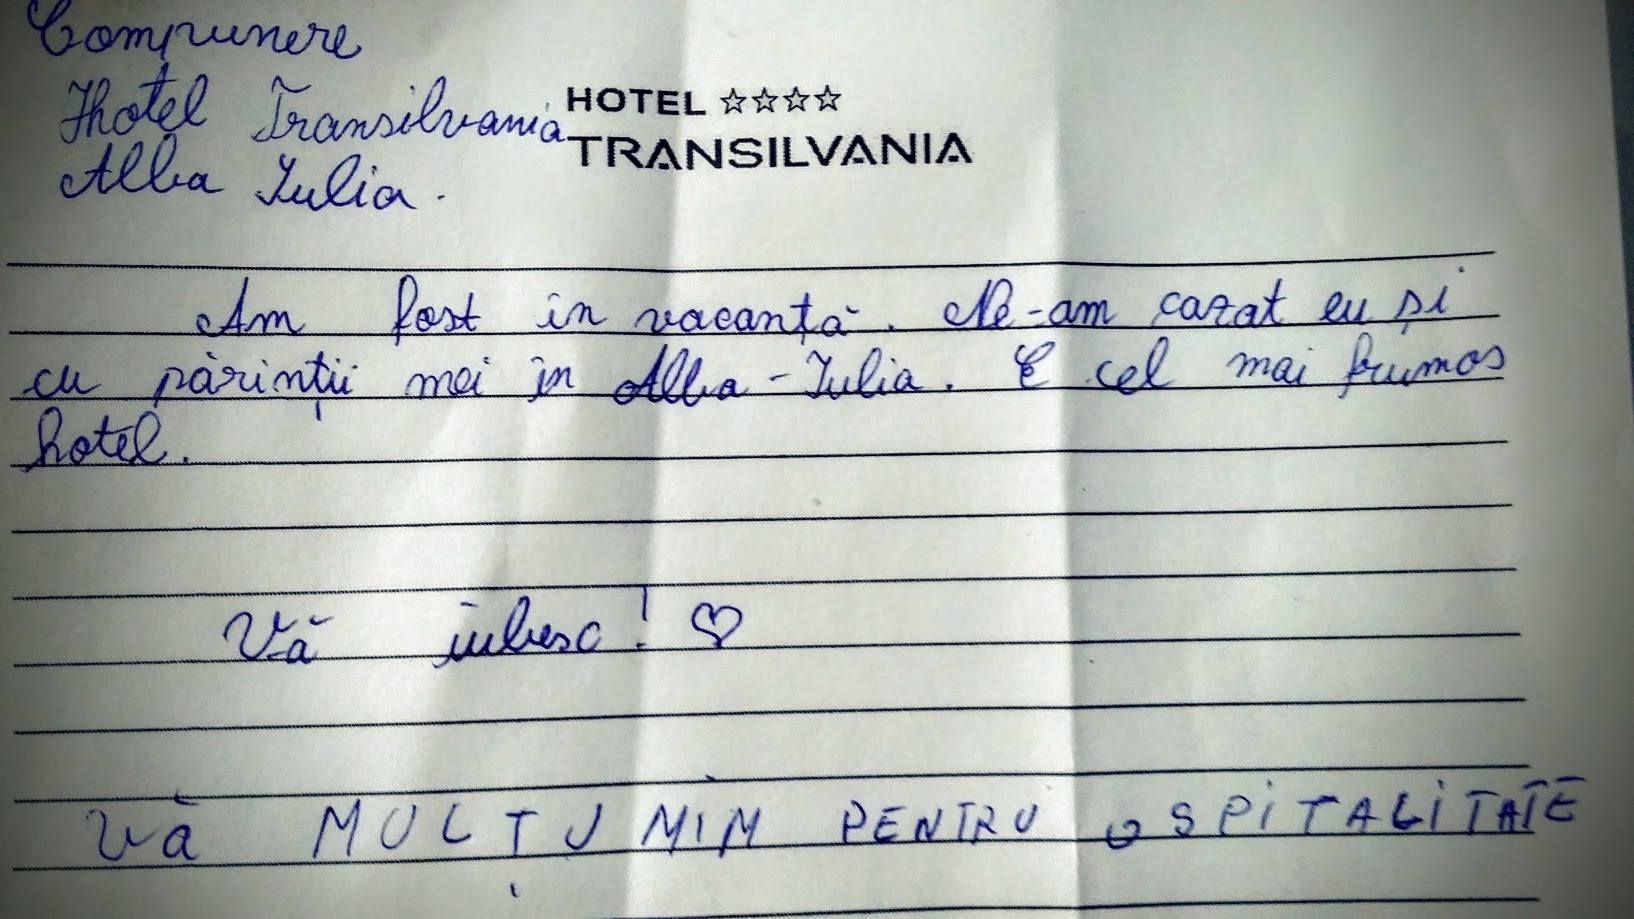 Compunere
Hotel Transilvania
Alba Iulia.
HOTEL ☆☆☆☆
TRANSILVANIA
Am fost în vacanță. Ne-am cazat eu și
cu părinții mei în Alba-Iulia. E cel mai frumos
hotel.
Vă iubesc! ♡
Vă MULȚUMIM PENTRU OSPITALITATE